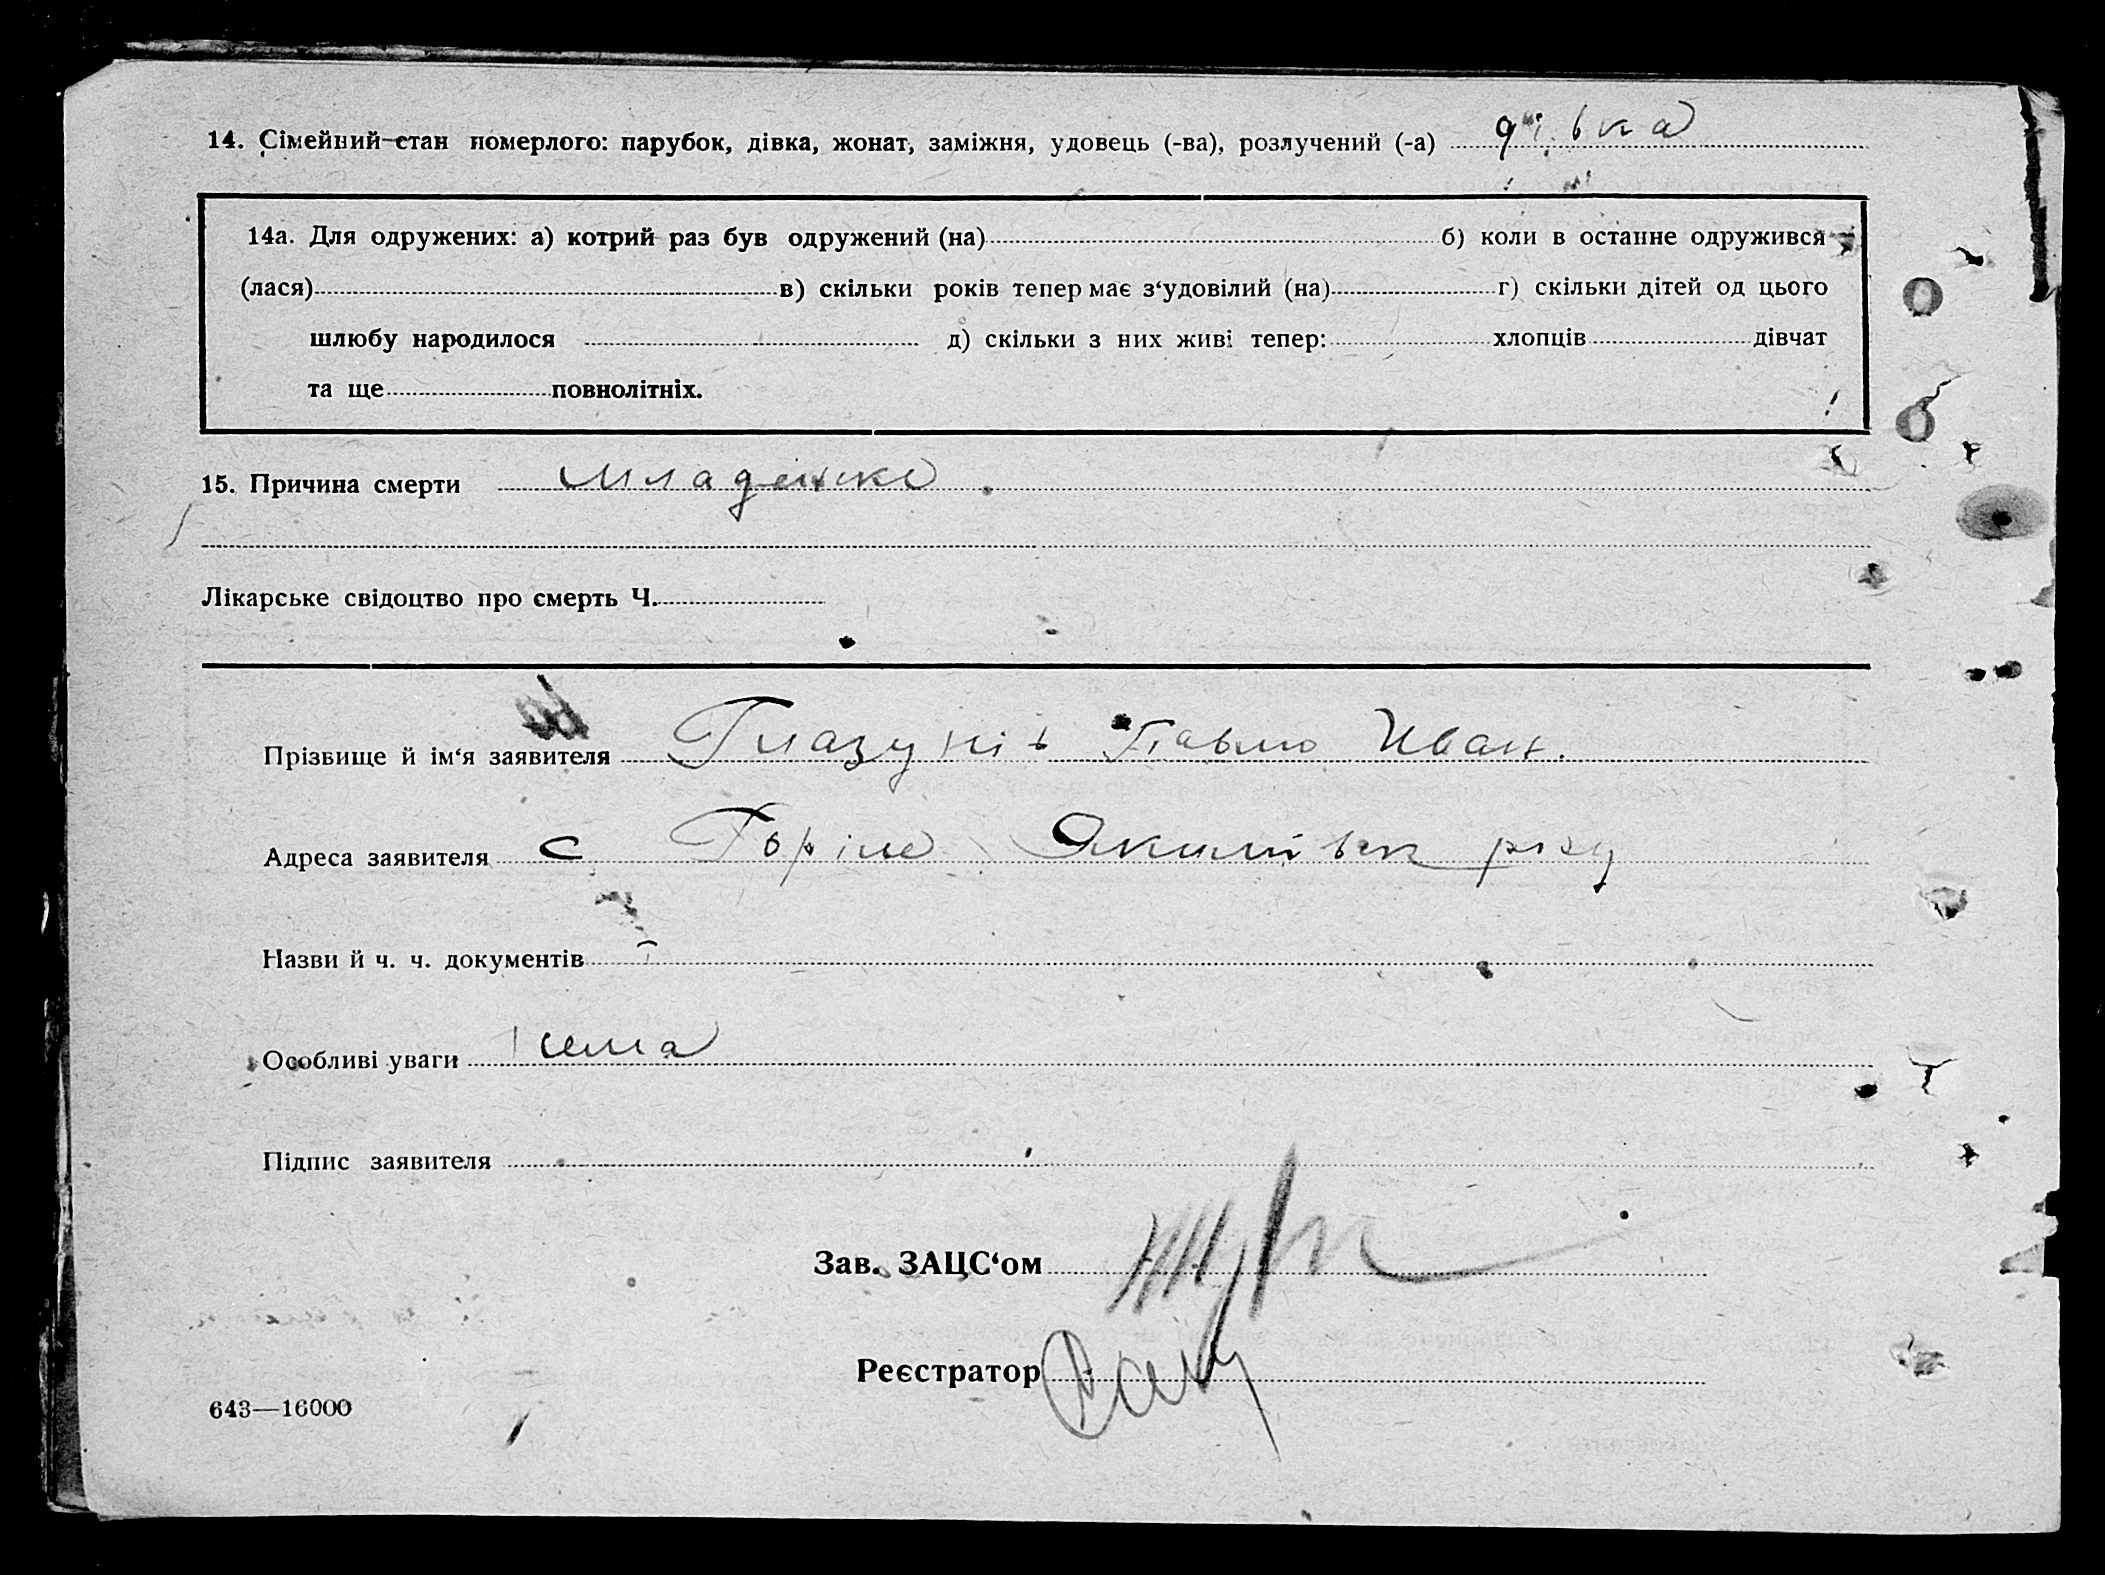 14. Сімейний стан померлого: парубок, дівка, жонат, заміжня, удовець (-ва), розлучений (-а) дівка
14а. Для одружених: а) котрий раз був одружений (на) б) коли в останнє одружився
(лася) в) скільки років тепер має з‘удовілий (на) г) скільки дітей од цього
шлюбу народилося д) скільки з них живі тепер: хлопців дівчат
та ще повнолітніх.
15. Причина смерти младенско
Лікарське свідоцтво про смерть Ч.
Прізвище й ім‘я заявителя Глазунів Павло Иван.
Адреса заявителя с Горіле Якимівск рну
Назви й ч. ч. документів
Особливі уваги нема
Підпис заявителя
Зав. ЗАЦС‘ом
Реєстратор
643—16000